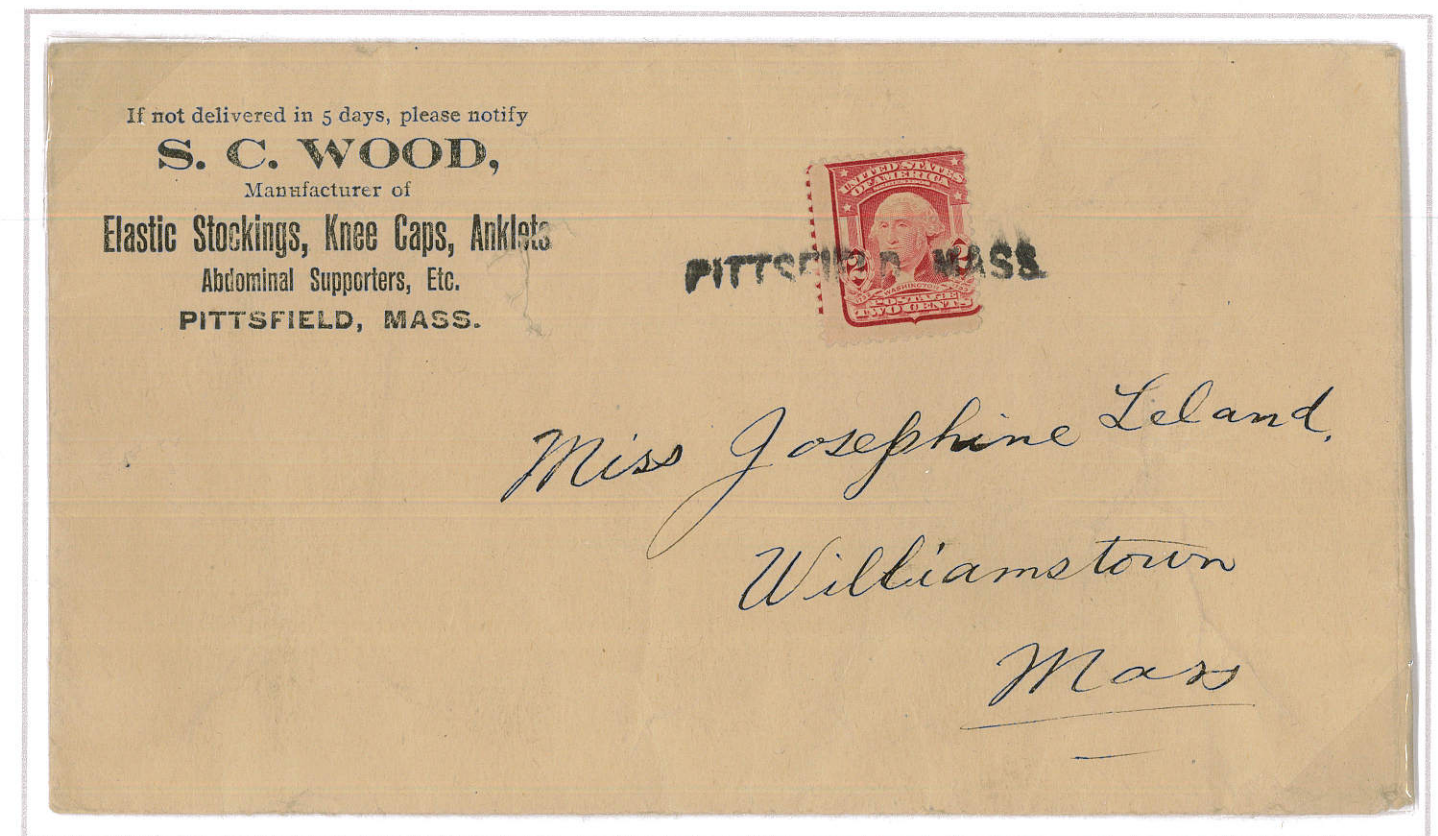 If not delivered in 5 days, please notify
S. C. WOOD,
Manufacturer of
Elastic Stockings, Knee Caps, Anklets
Abdominal Supporters, Etc.
PITTSFIELD, MASS.
UNITED STATES
OF AMERICA
2 2
WASHINGTON
POSTAGE
TWO CENTS
PITTSFIELD MASS.
Miss Josephine Leland,
Williamstown
Mass